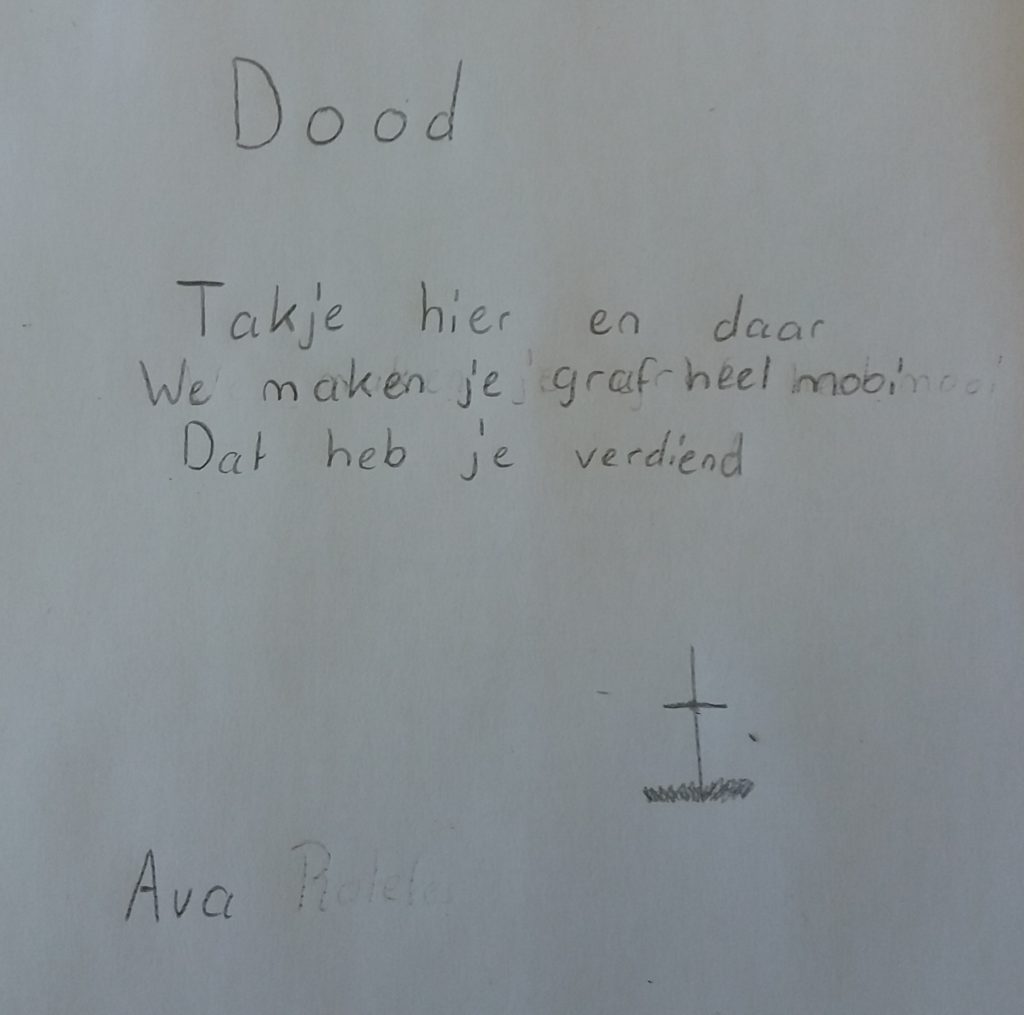 Dood
Takje hier en daar
We maken je graf heel mooi
Dat heb je verdiend
Ava